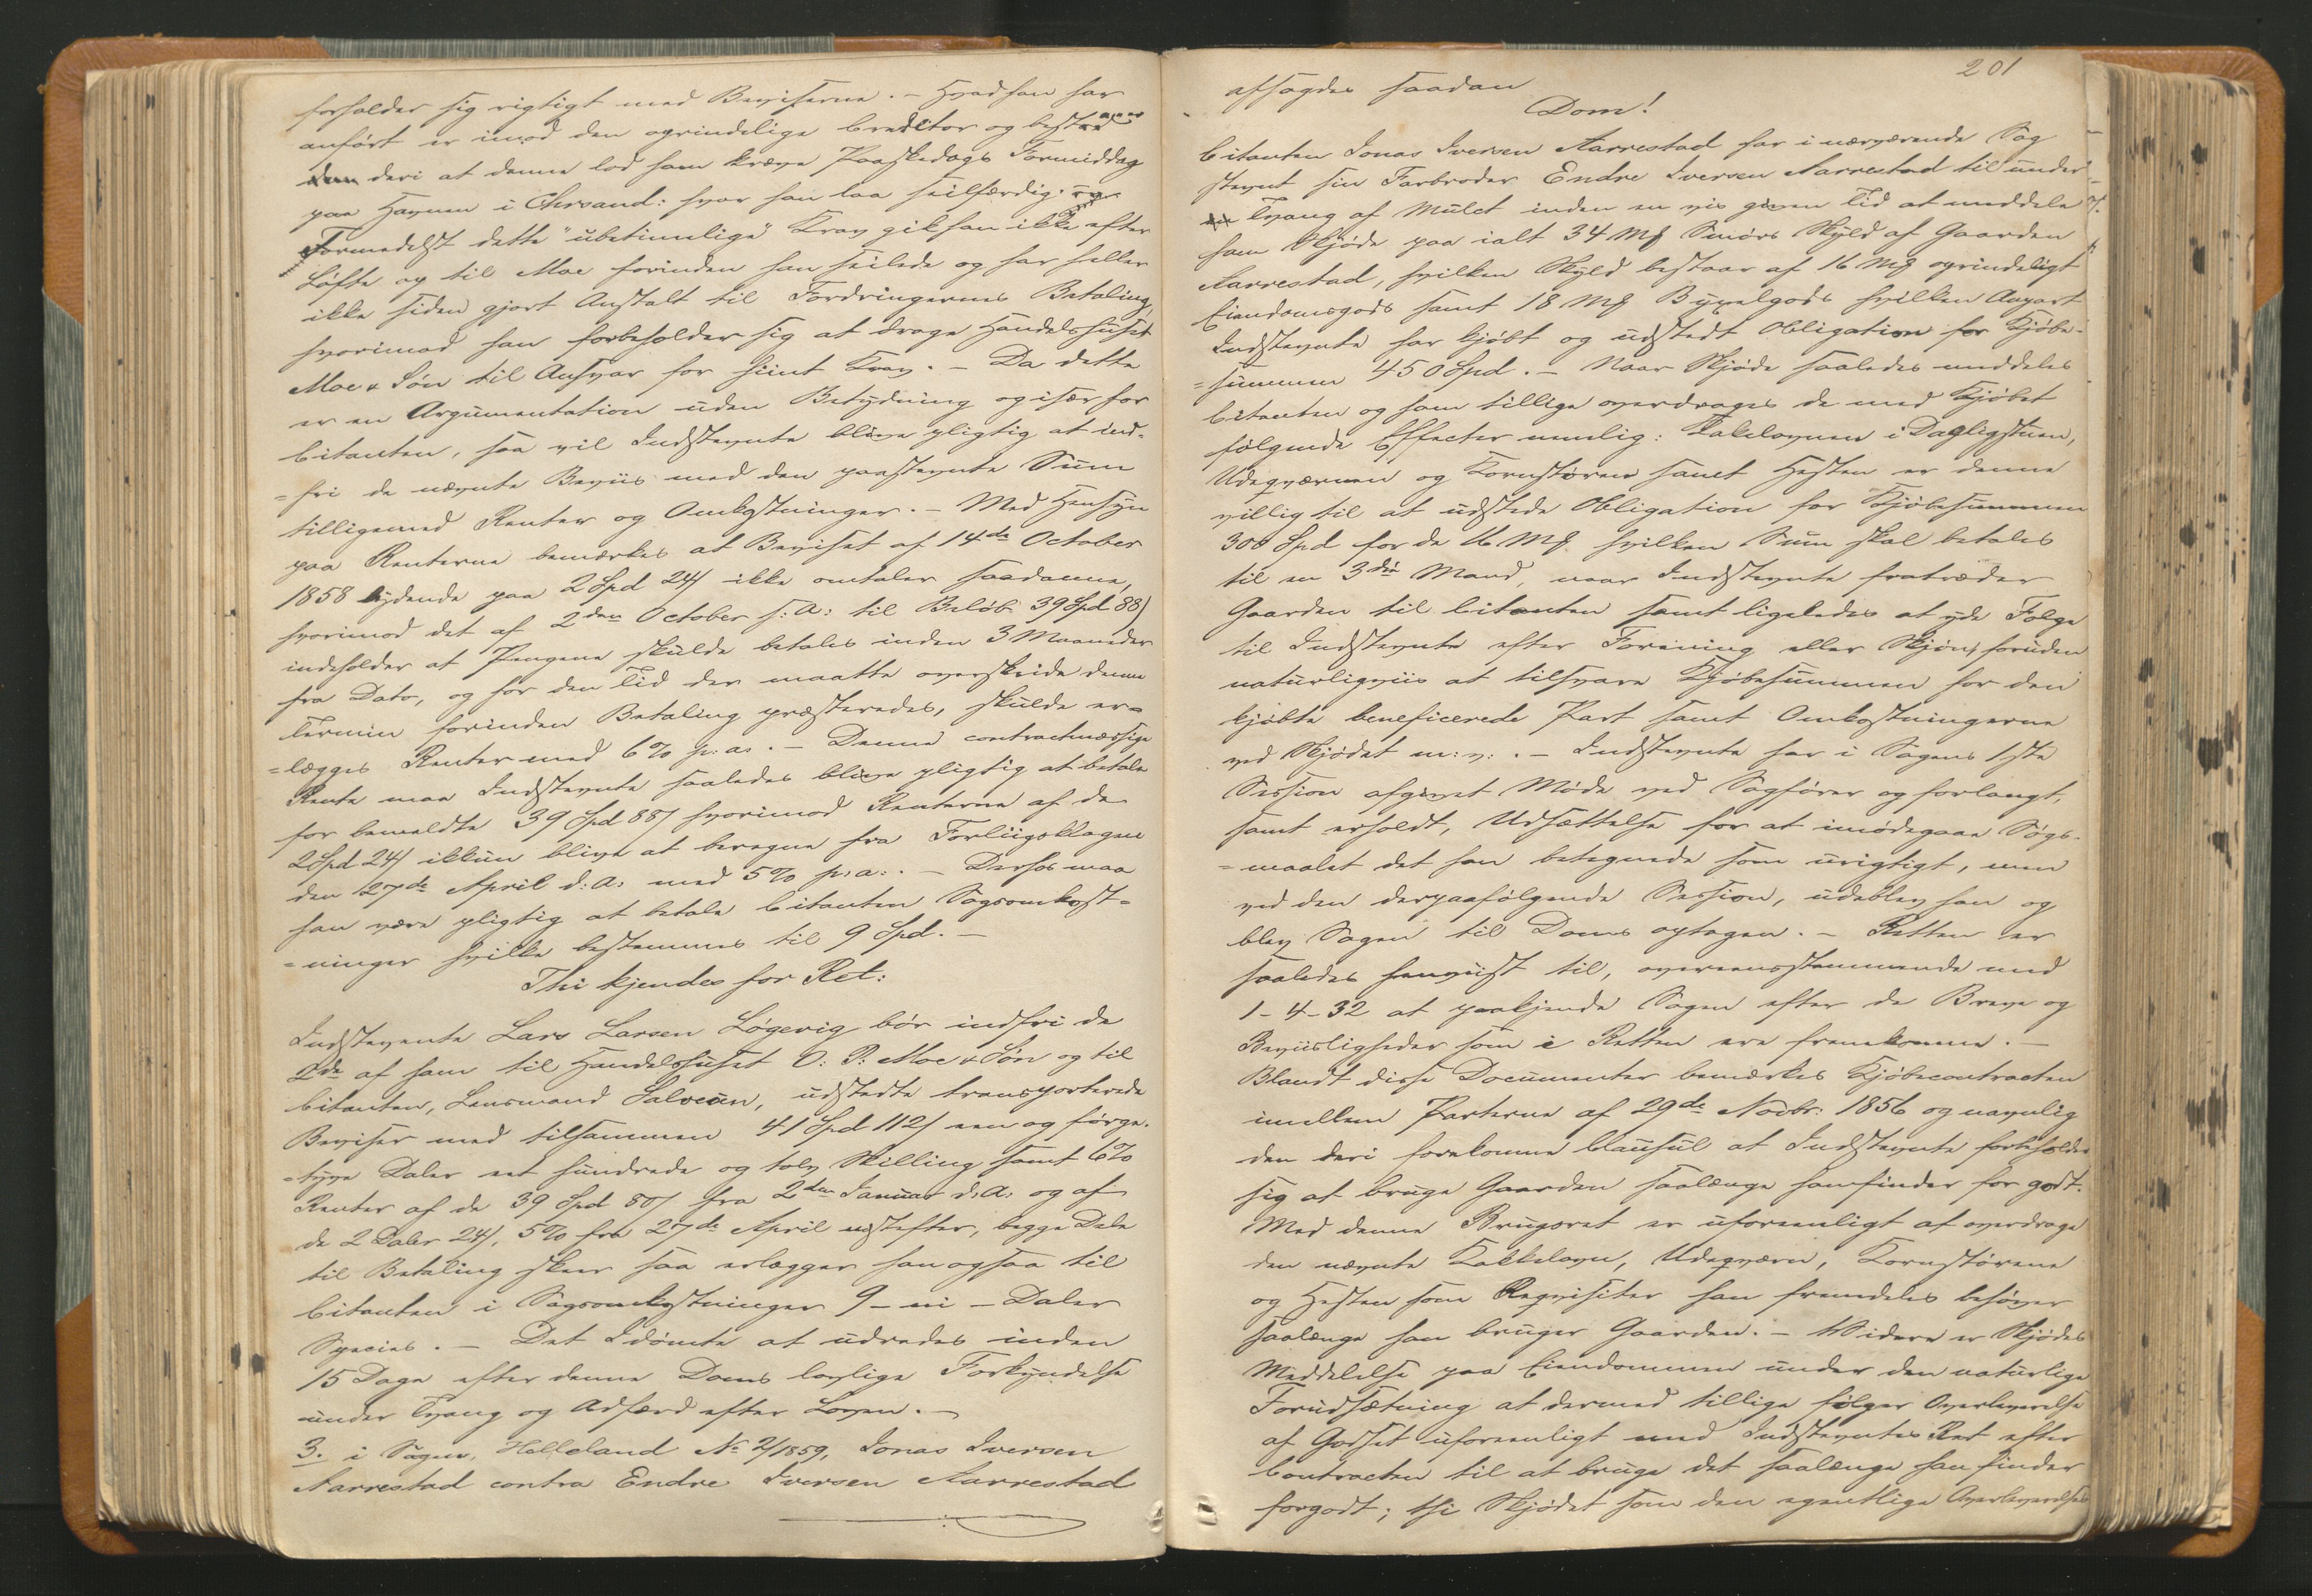 forholder sig rigtigt med Beviserne. – Hvad han har
anført er imod den oprindelige Creditor og bestaaer
deri at denne lod ham kræve Paaskedags Formiddag
paa Havnen i Chrsand: hvor han laa seilfærdig. og
Formedelst dette "ubetimelige" Krav gik han ikke efter
Løfte op til Moe forinden han seilede og har heller
ikke siden gjort Anstalt til Fordringernes Betaling,
hvorimod han forbeholder sig at drage Handelshuset
Moe & Søn til Ansvar for hiint Krav. – Da dette
er en Argumentation uden Betydning og især for
Citanten, saa vil Indstevnte blive pligtig at ind-
=fri de nævnte Beviis med den paastevnte Sum
tilligemed Renter og Omkostninger. – Med Hensyn
paa Renterne bemærkes at Beviset af 14de October
1858 lydende paa 2 Spd 24 s ikke omtaler saadanne,
hvorimod det af 2den October s: A: til Beløb 39 Spd 88 s
indeholder at Pengene skulde betales inden 3 Maaneder
fra Dato, og for den Tid der maatte overskride denne
Termin forinden Betaling præsteredes, skulde er=
=lægges Renter med 6 % p: a:. – Denne contractmæssige
Rente maa Indstevnte saaledes blive pligtig at betale
for bemeldte 39 Spd 88 s hvorimod Renterne af de
2 Spd 24 s ikkun blive at beregne fra Forliigsklagen
den 27de April d: A: med 5 % p: a:. – Derhos maa
han være pligtig at betale Citanten Sagsomkost=
=ninger hvilke bestemmes til 9 Spd. –
Thi kjendes for Ret:
Indstevnte Lars Larsen Løgevig bør indfri de
2de af ham til Handelshuset O: P: Moe & Søn og til
Citanten, Lensmand Salvesen, udstedte transporterede
Beviser med tilsammen 41 Spd 112 s een og førge-
=tyve Daler eet hundrede og tolv Skilling samt 6 %
Renter af de 39 Spd 88 s fra 2den Januar d: A: og af
de 2 Daler 24 s, 5 % fra 27de April næstefter, begge Dele
til Betaling skeer saa erlægger han ogsaa til
Citanten i Sagsomkostninger 9 – ni – Daler
Species. – Det Idømte at udredes inden
15 Dage efter denne Doms lovlige Forkyndelse
under Tvang og Adfærd efter Loven. –
3. i Sagen, Helleland No 2/1859, Jonas Iversen
Aarrestad contra Endre Iversen Aarrestad
201
afsagdes saadan
Dom!
Citanten Jonas Iversen Aarrestad har i nærværende Sag
stevnt sin Farbroder Endre Iversen Aarrestad til under
Tvang af Mulct inden en vis given Tid at meddele
ham Skjøde paa ialt 34 Mk Smørs Skyld af Gaarden
Aarrestad, hvilken Skyld bestaar af 16 Mk oprindeligt
Eiendomsgods samt 18 Mk Byxelgods hvilken Anpart
Indstevnte har kjøbt og udstedt Obligation for Kjøbe-
=summen 450 Spd. – Naar Skjøde saaledes meddeles
Citanten og ham tillige overdrages de med Kjøbet
følgende Effecter nemlig: Kakelovnen i Dagligstuen,
Udeqværnen og Kornstørene samt Hesten er denne
villig til at udstede Obligation for Kjøbesummen
300 Spd for de 16 Mk. hvilken Sum skal betales
til en 3die Mand, naar Indstevnte fratræder
Gaarden til Citanten samt ligeledes at yde Følge
til Indstevnte efter Forening eller Skjøn, foruden
naturligviis at tilsvare Kjøbesummen for den
kjøbte beneficerede Part samt Omkostningerne
ved Skjødet m: v:. – Indstevnte har i Sagens 1ste
Session afgivet Møde ved Sagfører og forlangt,
samt erholdt, Udsættelse for at imødegaae Søgs-
=maalet det han betegnede som urigtigt, men
ved den derpaafølgende Session, udeblev han og
blev Sagen til Doms optagen. – Retten er
saaledes henviist til, overeensstemmende med
1-4-32 at paakjende Sagen efter de Breve og
Beviisligheder som i Retten ere fremkomne. –
Blandt disse Documenter bemærkes Kjøbecontracten
imellem Parterne af 29de Novbr: 1856 og navnlig
den deri forekomne Clausul at Indstevnte forbeholder
sig at bruge Gaarden saalænge ham finder for godt.
Med denne Brugsret er uforenligt at overdrage
den nævnte Kakkelovn, Udeqværn, Kornstørene
og Hesten som Reqvisiter han fremdeles behøver
saalænge han bruger Gaarden. – Videre er Skjødes
Meddelelse paa Eiendommen under den naturlige
Forudsætning at dermed tillige følger Overleverelse
af Godset uforeenligt med Indstevntes Ret efter
Contracten til at bruge det saalænge han finder
forgodt; thi Skjødet som den egentlige Overleverelses